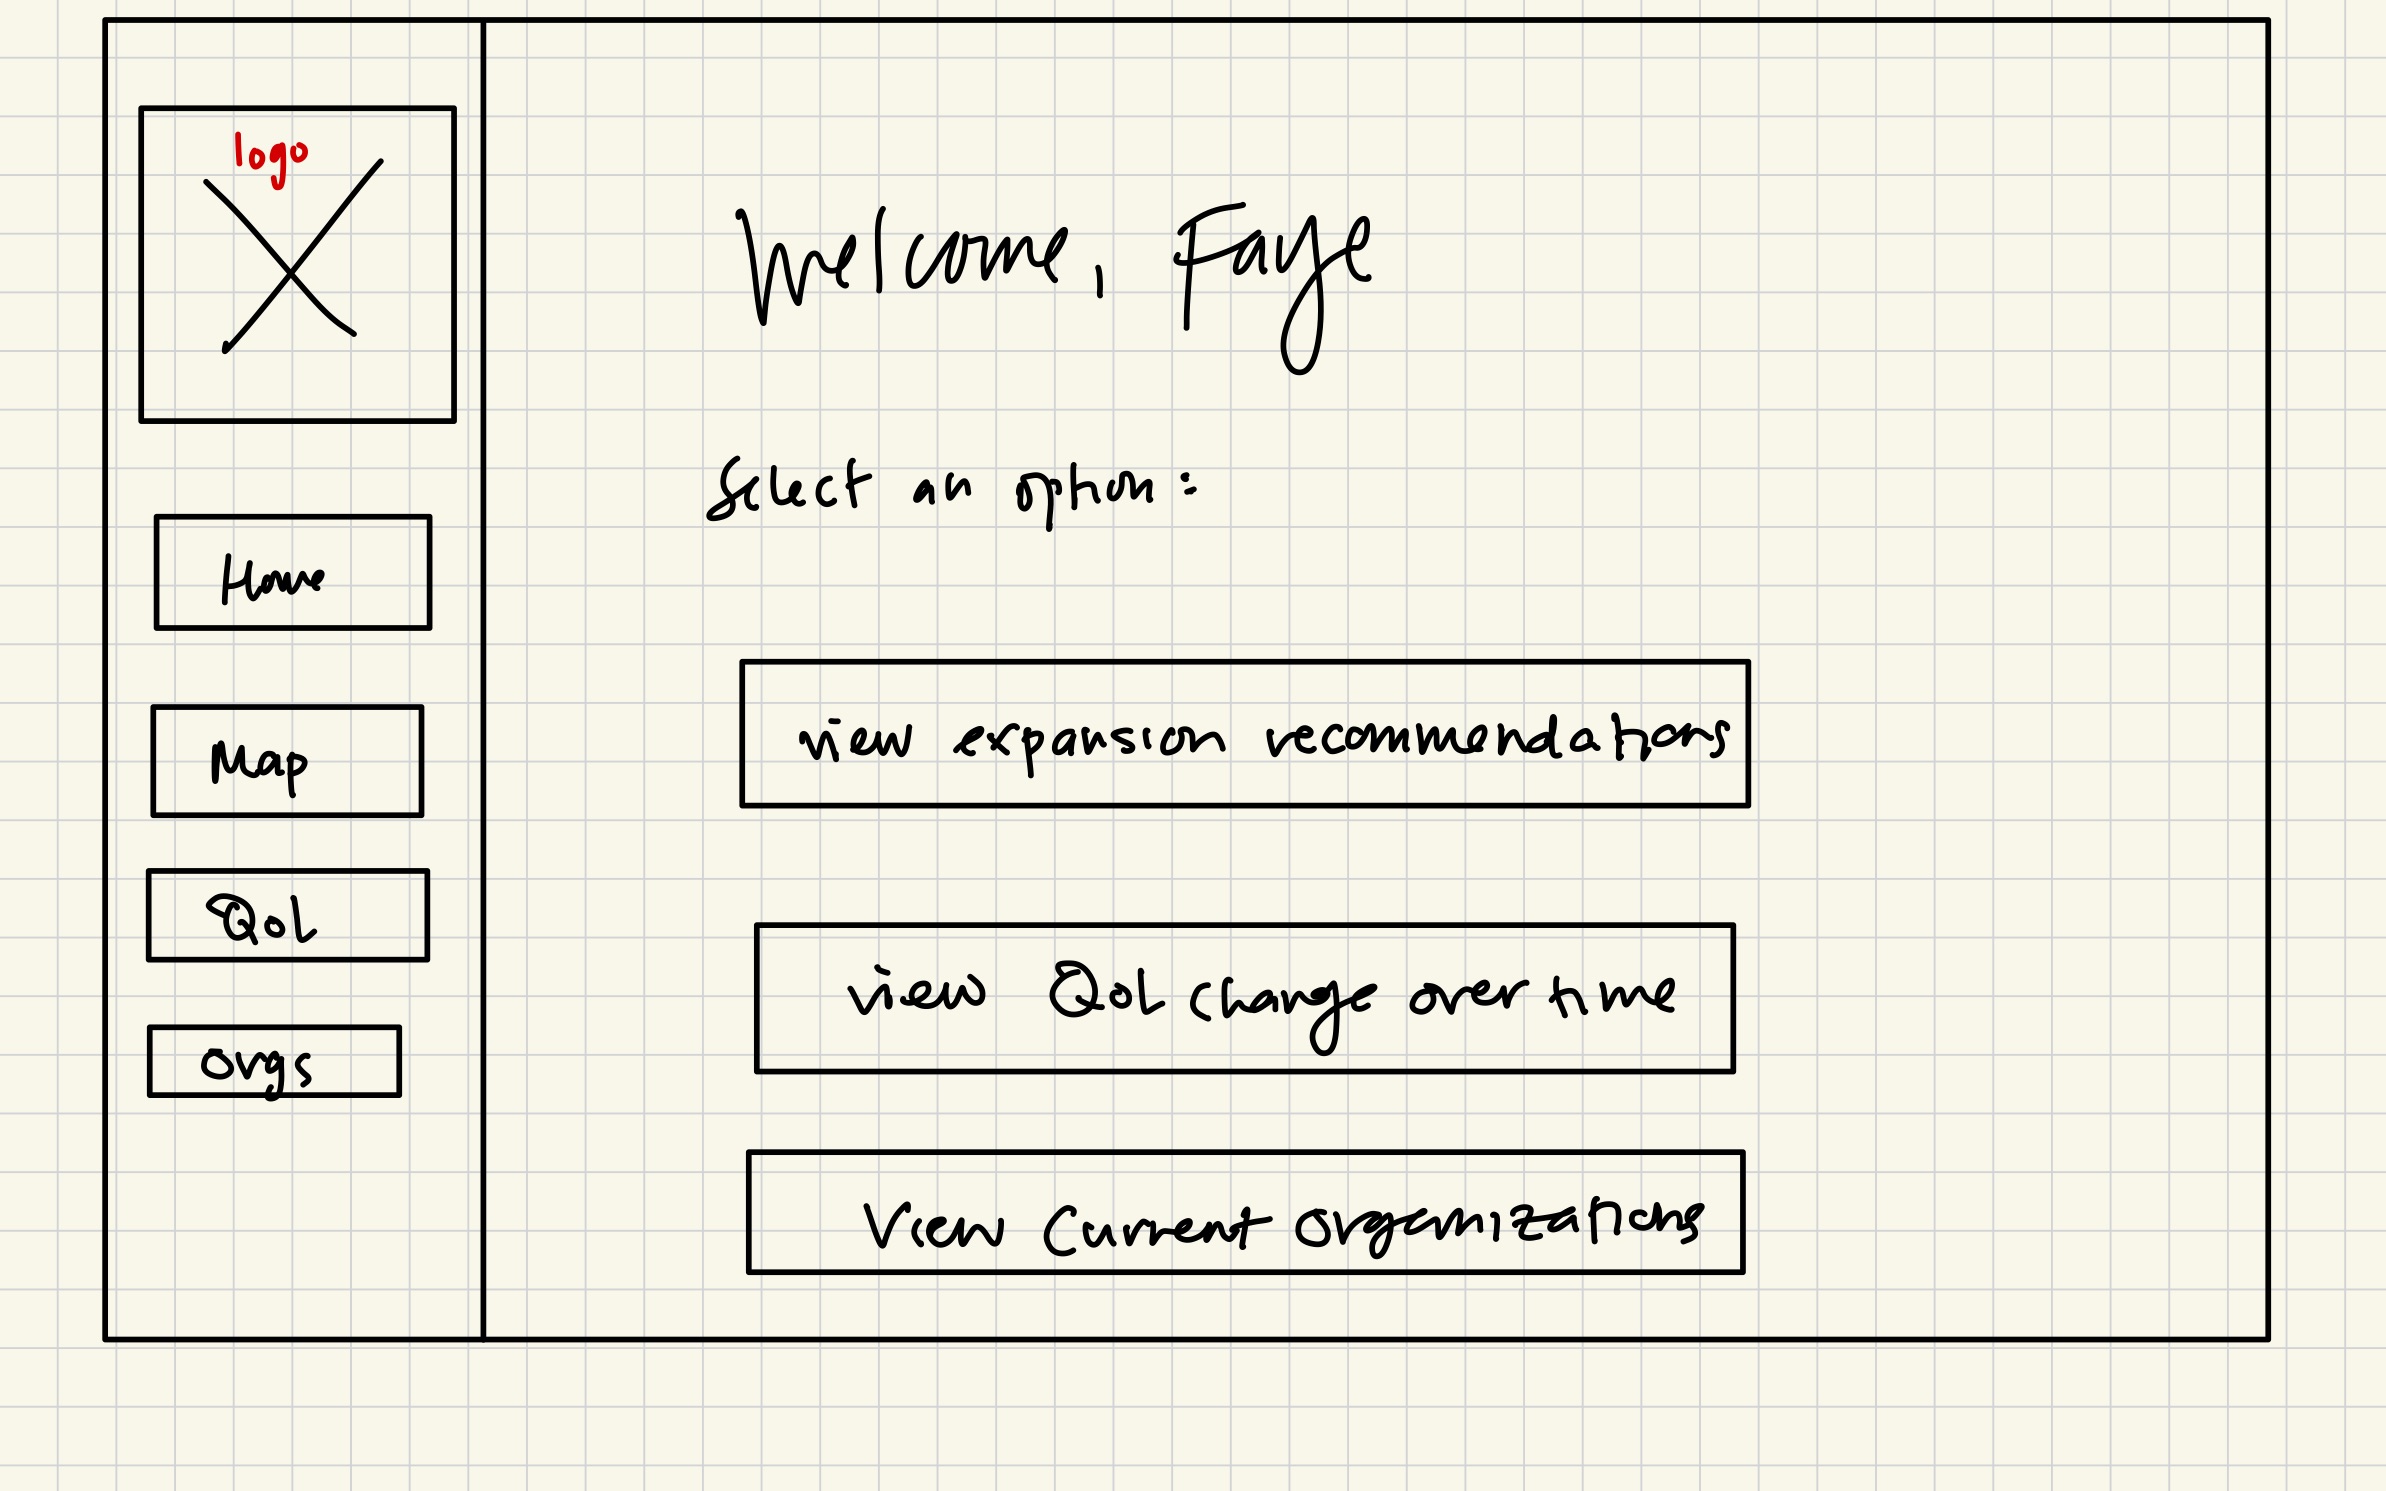 logo
Home
Map
QoL
Orgs
Welcome, Faye
Select an option:
view expansion recommendations
view QoL change over time
View Current Organizations